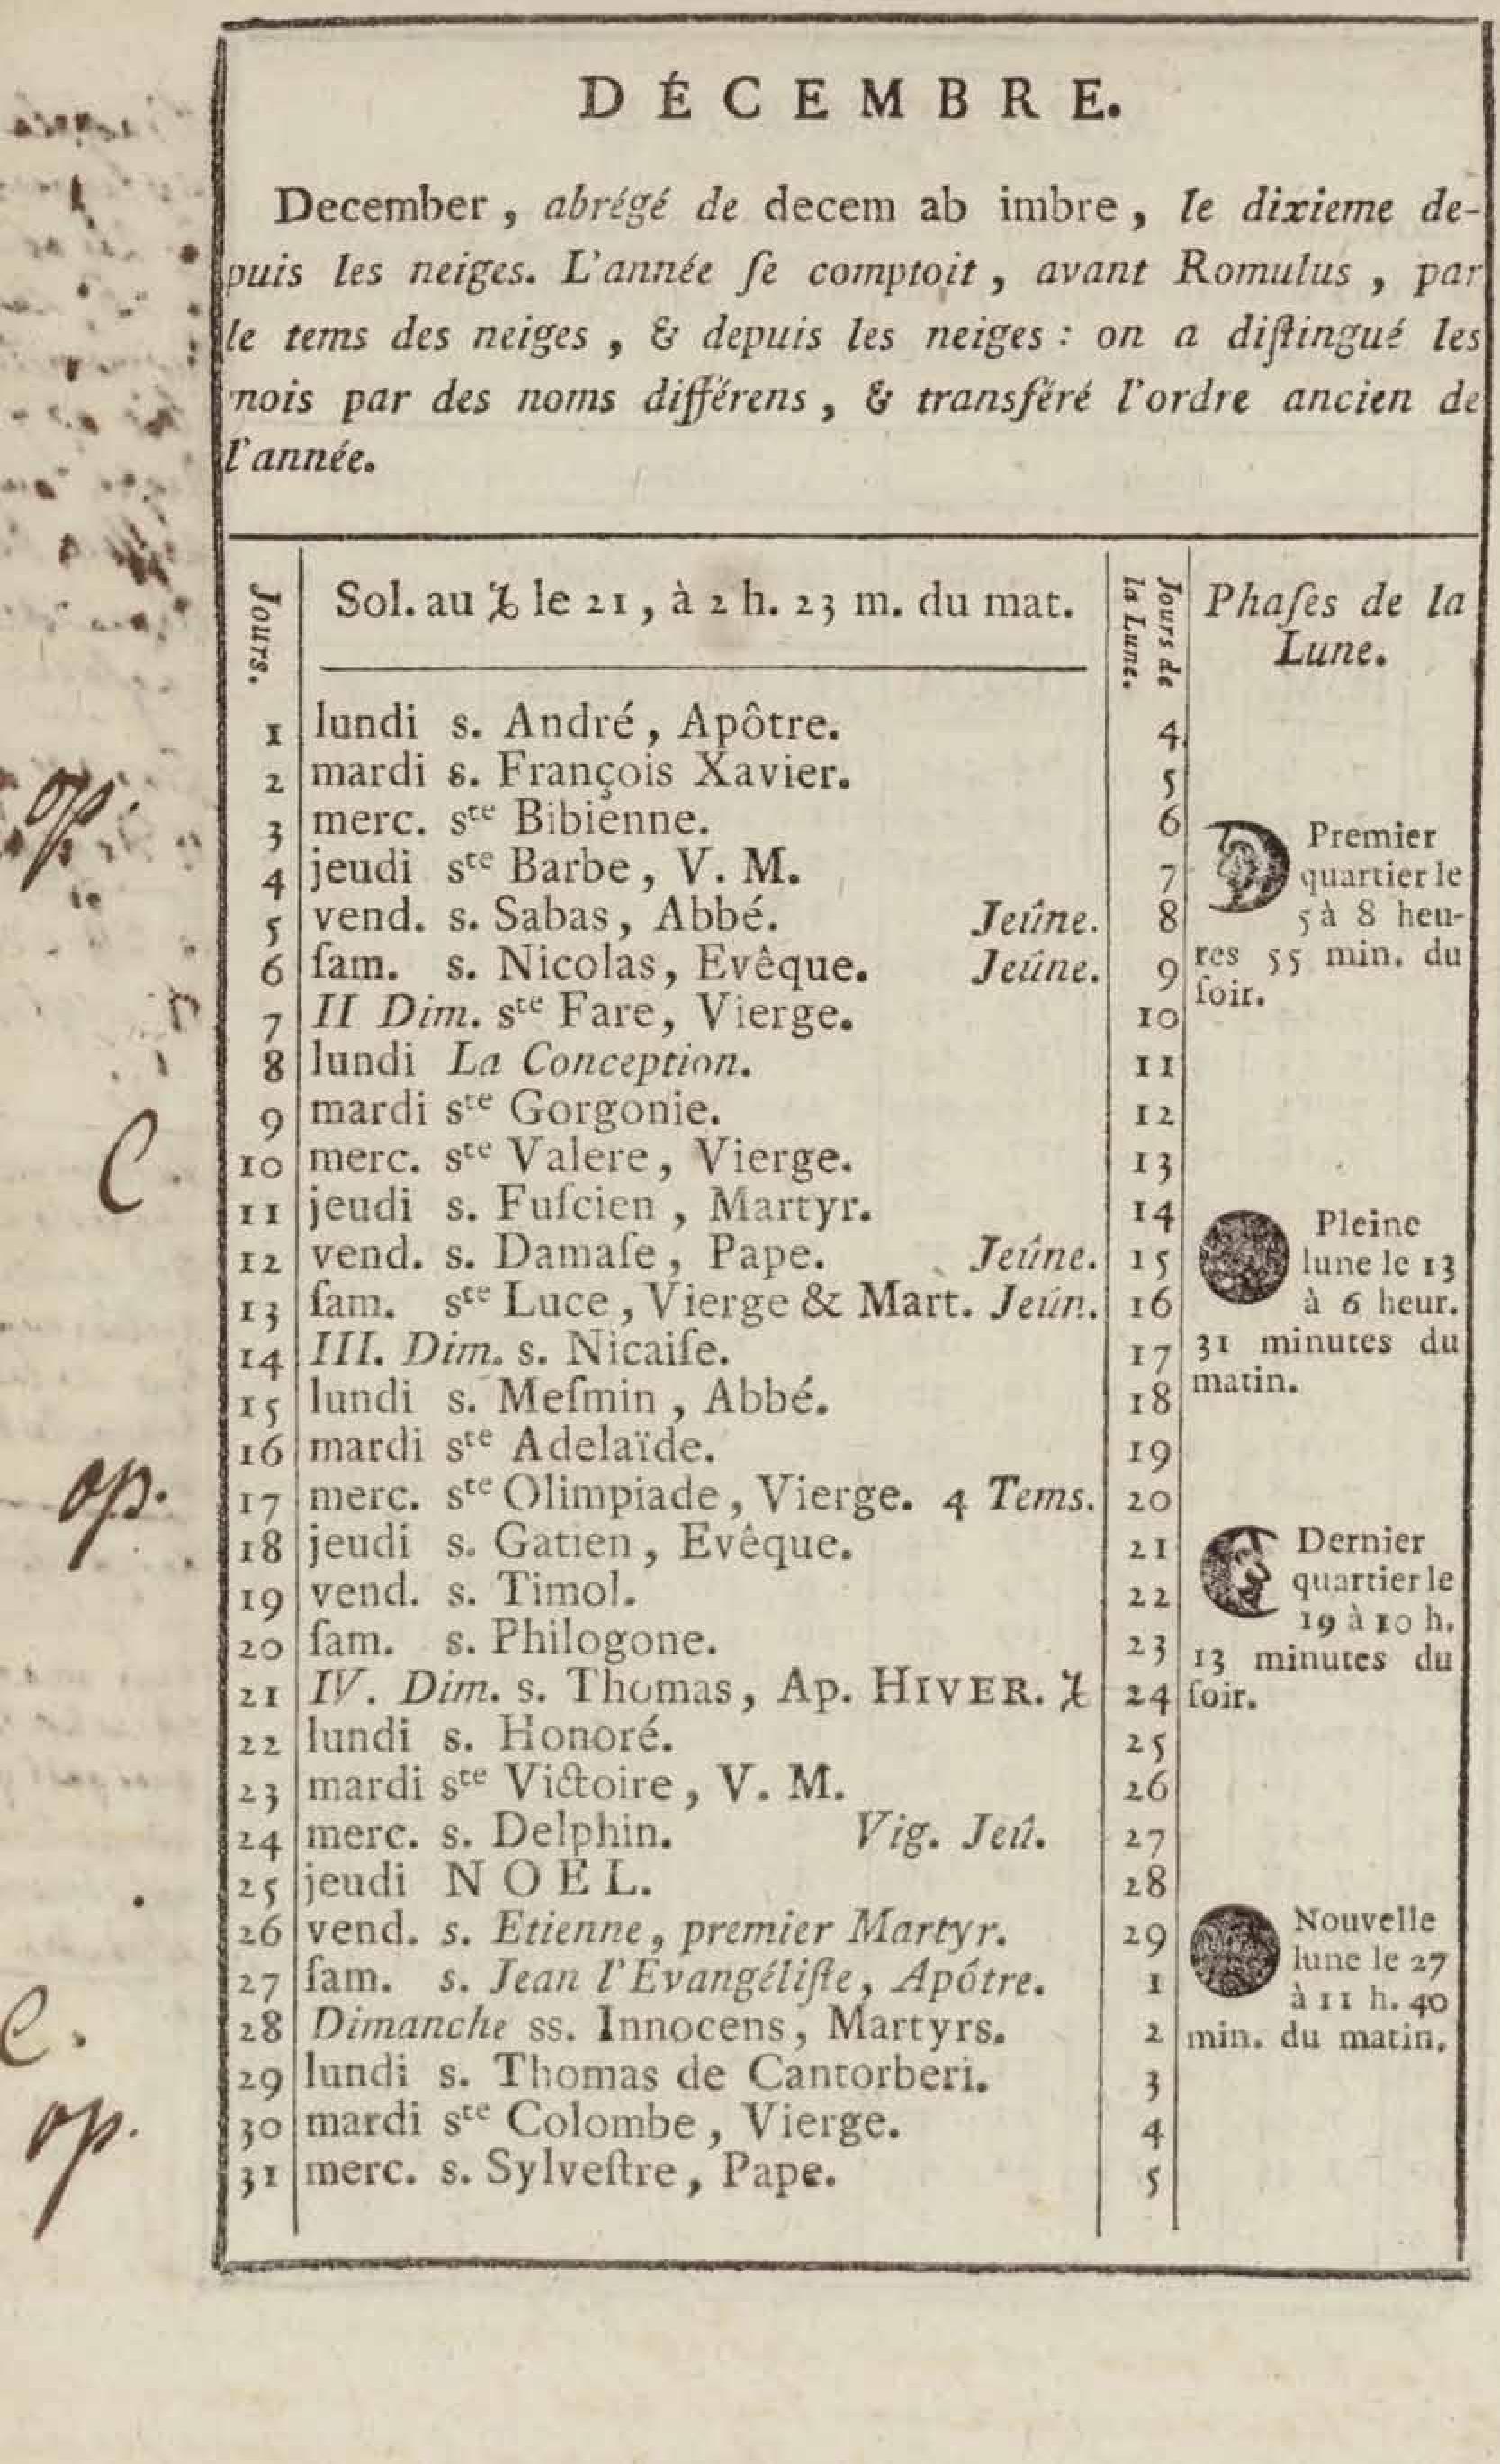 DÉCEMBRE.
December, abrégé de decem ab imbre, le dixieme de-
puis les neiges. L'année ſe comptoit, avant Romulus, par
le tems des neiges, & depuis les neiges : on a diſtingué les
mois par des noms différens, & transféré l'ordre ancien de
l'année.
Jours.
Sol. au ♑ le 21, à 2 h. 23 m. du mat.
Jours de
la Lune.
Phaſes de la
Lune.
1 lundi s. André, Apôtre. 4
2 mardi s. François Xavier. 5
3 merc. ste Bibienne. 6
4 jeudi ste Barbe, V. M. 7
5 vend. s. Sabas, Abbé. Jeûne. 8
6 ſam. s. Nicolas, Evêque. Jeûne. 9
7 II Dim. ste Fare, Vierge. 10
8 lundi La Conception. 11
9 mardi ste Gorgonie. 12
10 merc. ste Valere, Vierge. 13
11 jeudi s. Fuſcien, Martyr. 14
12 vend. s. Damaſe, Pape. Jeûne. 15
13 ſam. ste Luce, Vierge & Mart. Jeûn. 16
14 III. Dim. s. Nicaiſe. 17
15 lundi s. Meſmin, Abbé. 18
16 mardi ste Adelaïde. 19
17 merc. ste Olimpiade, Vierge. 4 Tems. 20
18 jeudi s. Gatien, Evêque. 21
19 vend. s. Timol. 22
20 ſam. s. Philogone. 23
21 IV. Dim. s. Thomas, Ap. HIVER. ♑ 24
22 lundi s. Honoré. 25
23 mardi ste Victoire, V. M. 26
24 merc. s. Delphin. Vig. Jeû. 27
25 jeudi NOEL. 28
26 vend. s. Etienne, premier Martyr. 29
27 ſam. s. Jean l'Evangéliſte, Apôtre. 1
28 Dimanche ss. Innocens, Martyrs. 2
29 lundi s. Thomas de Cantorberi. 3
30 mardi ste Colombe, Vierge. 4
31 merc. s. Sylveſtre, Pape. 5
Premier
quartier le
5 à 8 heu-
res 55 min. du
ſoir.
Pleine
lune le 13
à 6 heur.
31 minutes du
matin.
Dernier
quartier le
19 à 10 h.
13 minutes du
ſoir.
Nouvelle
lune le 27
à 11 h. 40
min. du matin.
op.
C.
op.
C.
op.